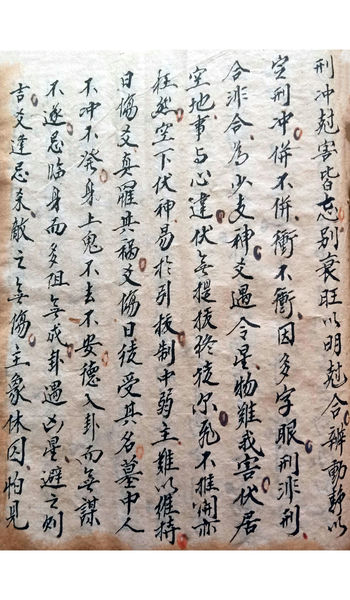 刑冲尅害皆忘别衰旺以明尅合辨動静以
定刑冲併不併衝不衝因多字眼刑非刑
合非合為少支神爻遇令星物難我害伏居
空地事与心違伏無提拔終徒尔飛不推開亦
枉然空下伏神易於引拔制中弱主難以維持
日傷爻真罹其禍爻傷日徒受其名墓中人
不冲不發身上鬼不去不安德入卦而無謀
不遂忌臨身而多阻無成卦遇凶星避之則
吉爻逢忌杀敵之無傷主象休囚怕見